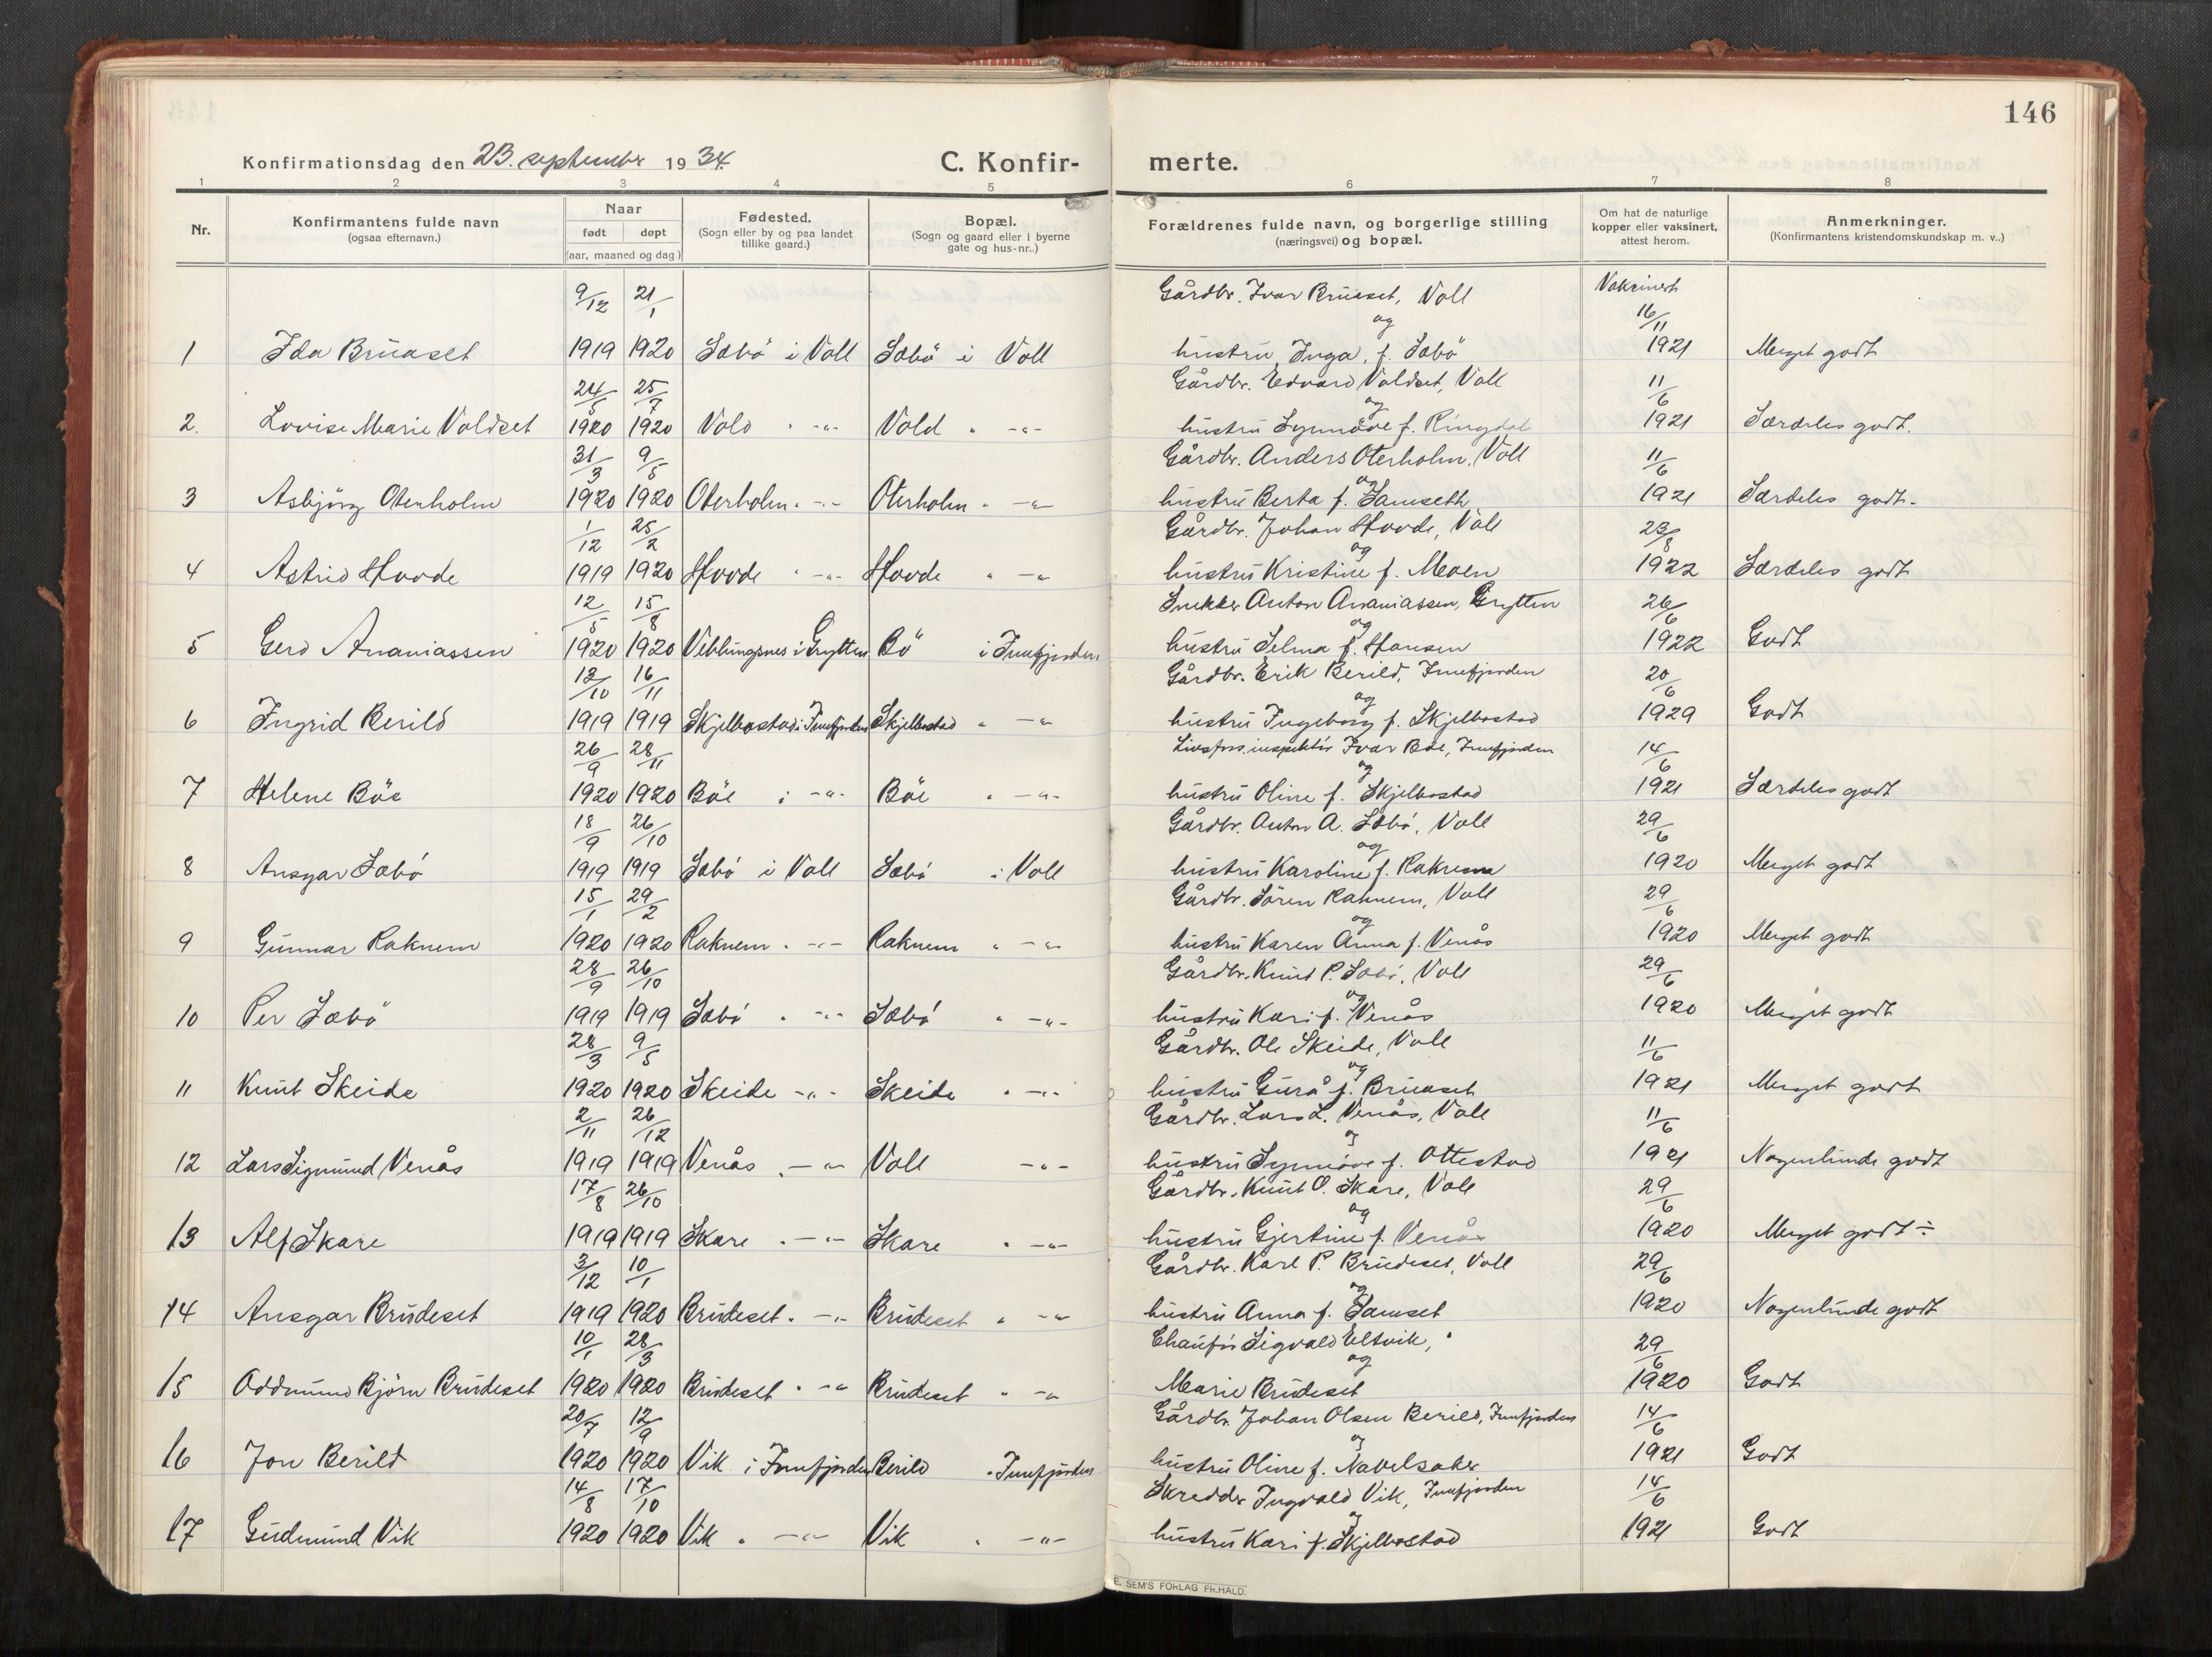 146
Konfirmationsdag den 23. september 1934.
C. Konfirmerte.
1 2 3 4 5 6 7 8
Nr.
Konfirmantens fulde navn (ogsaa efternavn.)
Naar født døpt (aar, maaned og dag)
Fødested. (Sogn eller by og paa landet tillike gaard.)
Bopæl. (Sogn og gaard eller i byerne gate og hus-nr..)
Forældrenes fulde navn, og borgerlige stilling (næringsvei) og bopæl.
Om hat de naturlige kopper eller vaksinert, attest herom.
Anmerkninger. (Konfirmantens kristendomskundskap m. v..)
9/12 21/1 Gårdbr. Ivar Brüaset, Voll og Vaksinert 16/11
1 Ida Brüaset 1919 1920 Sæbö i Voll Sæbö i Voll hustrü Inga, f. Sæbö 1921 Meget godt
24/5 25/7 Gårdbr. Edvard Voldset, Voll og 11/6
2. Lovise Marie Voldset 1920 1920 Vold " -"- Vold " -"- hustrü Synnöve f. Ringdal 1921 Særdeles godt.
31/3 9/5 Gårdbr. Anders Oterholm, Voll og 11/6
3 Asbjörg Oterholm 1920 1920 Oterholm " -"- Oterholm " -"- hustrü Berta f. Samseth 1921 Særdeles godt.
1/12 25/2 Gårdbr. Johan Hovde, Voll og 23/8
4 Astrid Hovde 1919 1920 Hovde " -"- Hovde " -"- hustrü Kristine f. Moen 1922 Særdeles godt
12/5 15/8 Snekker Anton Ananiassen, Grytten og 26/6
5 Gerd Ananiassen 1920 1920 Veblüngsnes i Grytten Bö i Innfjorden hustrü Selma f. Hansen 1922 Godt
12/10 16/11 Gårdbr. Erik Berild, Innfjorden og 20/6
6 Ingrid Berild 1919 1919 Skjelbostad i Innfjorden Skjelbostad " -"- hustrü Ingeborg f. Skjelbostad 1929 Godt
26/9 28/11 Livsfors.inspektör Ivar Böe, Innfjorden og 14/6
7 Helene Böe 1920 1920 Böe i -"- Böe " -"- hustrü Oline f. Skjelbostad 1921 Særdeles godt
18/9 26/10 Gårdbr. Anton A. Sæbö, Voll og 29/6
8 Ansgar Sæbö 1919 1919 Sæbö i Voll Sæbö i Voll hustrü Karoline f. Raknem 1920 Meget godt
15/1 29/2 Gårdbr. Sören Raknem, Voll og 29/6
9 Günnar Raknem 1920 1920 Raknem " -"- Raknem " -"- hustrü Karen Anna f. Venås 1920 Meget godt
28/9 26/10 Gårdbr. Knüt P. Sæbö, Voll og 29/6
10 Per Sæbö 1919 1919 Sæbö " -"- Sæbö " -"- hustrü Kari f. Venås 1920 Meget godt
28/3 9/5 Gårdbr. Ole Skeide, Voll og 11/6
11 Knüt Skeide 1920 1920 Skeide -"- Skeide " -"- hustrü Gürå f. Brüaset 1921 Meget godt
2/11 26/12 Gårdbr. Lars L. Venås, Voll og 11/6
12 Lars Sigmünd Venås 1919 1919 Venås " -"- Voll -"- hustrü Synnöve f. Ottestad 1921 Nogenlünde godt
17/8 26/10 Gårdbr. Knüt O. Skare, Voll og 29/6
13 Alf Skare 1919 1919 Skare " -"- Skare " -"- hustrü Gjertine f. Venås 1920 Meget godt ÷
3/12 10/1 Gårdbr. Karl P. Brüdeset, Voll og 29/6
14 Ansgar Brüdeset 1919 1920 Brüdeset " -"- Brüdeset " -"- hustrü Anna f. Samset 1920 Nogenlünde godt
10/1 28/3 Chaufför Sigvald Eltvik, " og 29/6
15 Oddmünd Björn Brüdeset 1920 1920 Brüdeset " -"- Brüdeset " -"- Marie Brüdeset 1920 Godt
20/7 12/9 Gårdbr. Johan Olsen Berild, Innfjorden og 14/6
16 Jon Berild 1920 1920 Vik i Innfjorden Berild " Innfjorden hustrü Oline f. Navelsaker 1921 Godt
14/8 17/10 Skredder Ingvald Vik, Innfjorden og 14/6
17 Güdmünd Vik 1920 1920 Vik " -"- Vik " -"- hustrü Kari f. Skjelbostad 1921 Godt
E. SEM'S FORLAG FR.HALD.